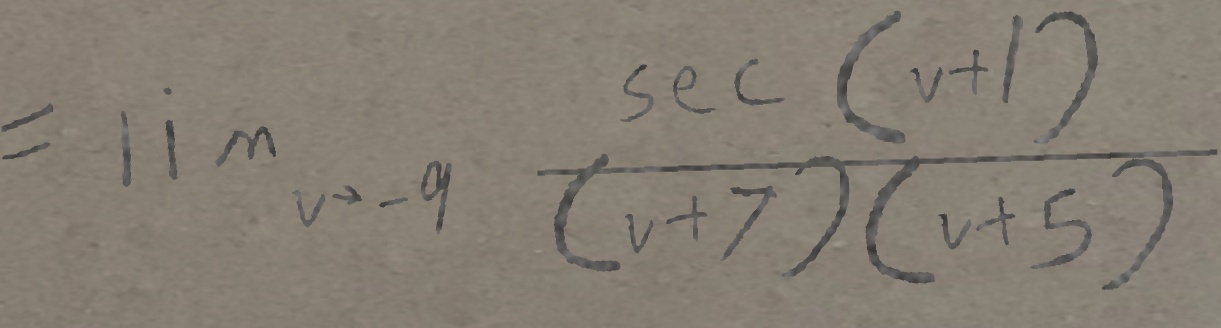 = lim_{v→-9} \frac{sec(v+1)}{(v+7)(v+5)}